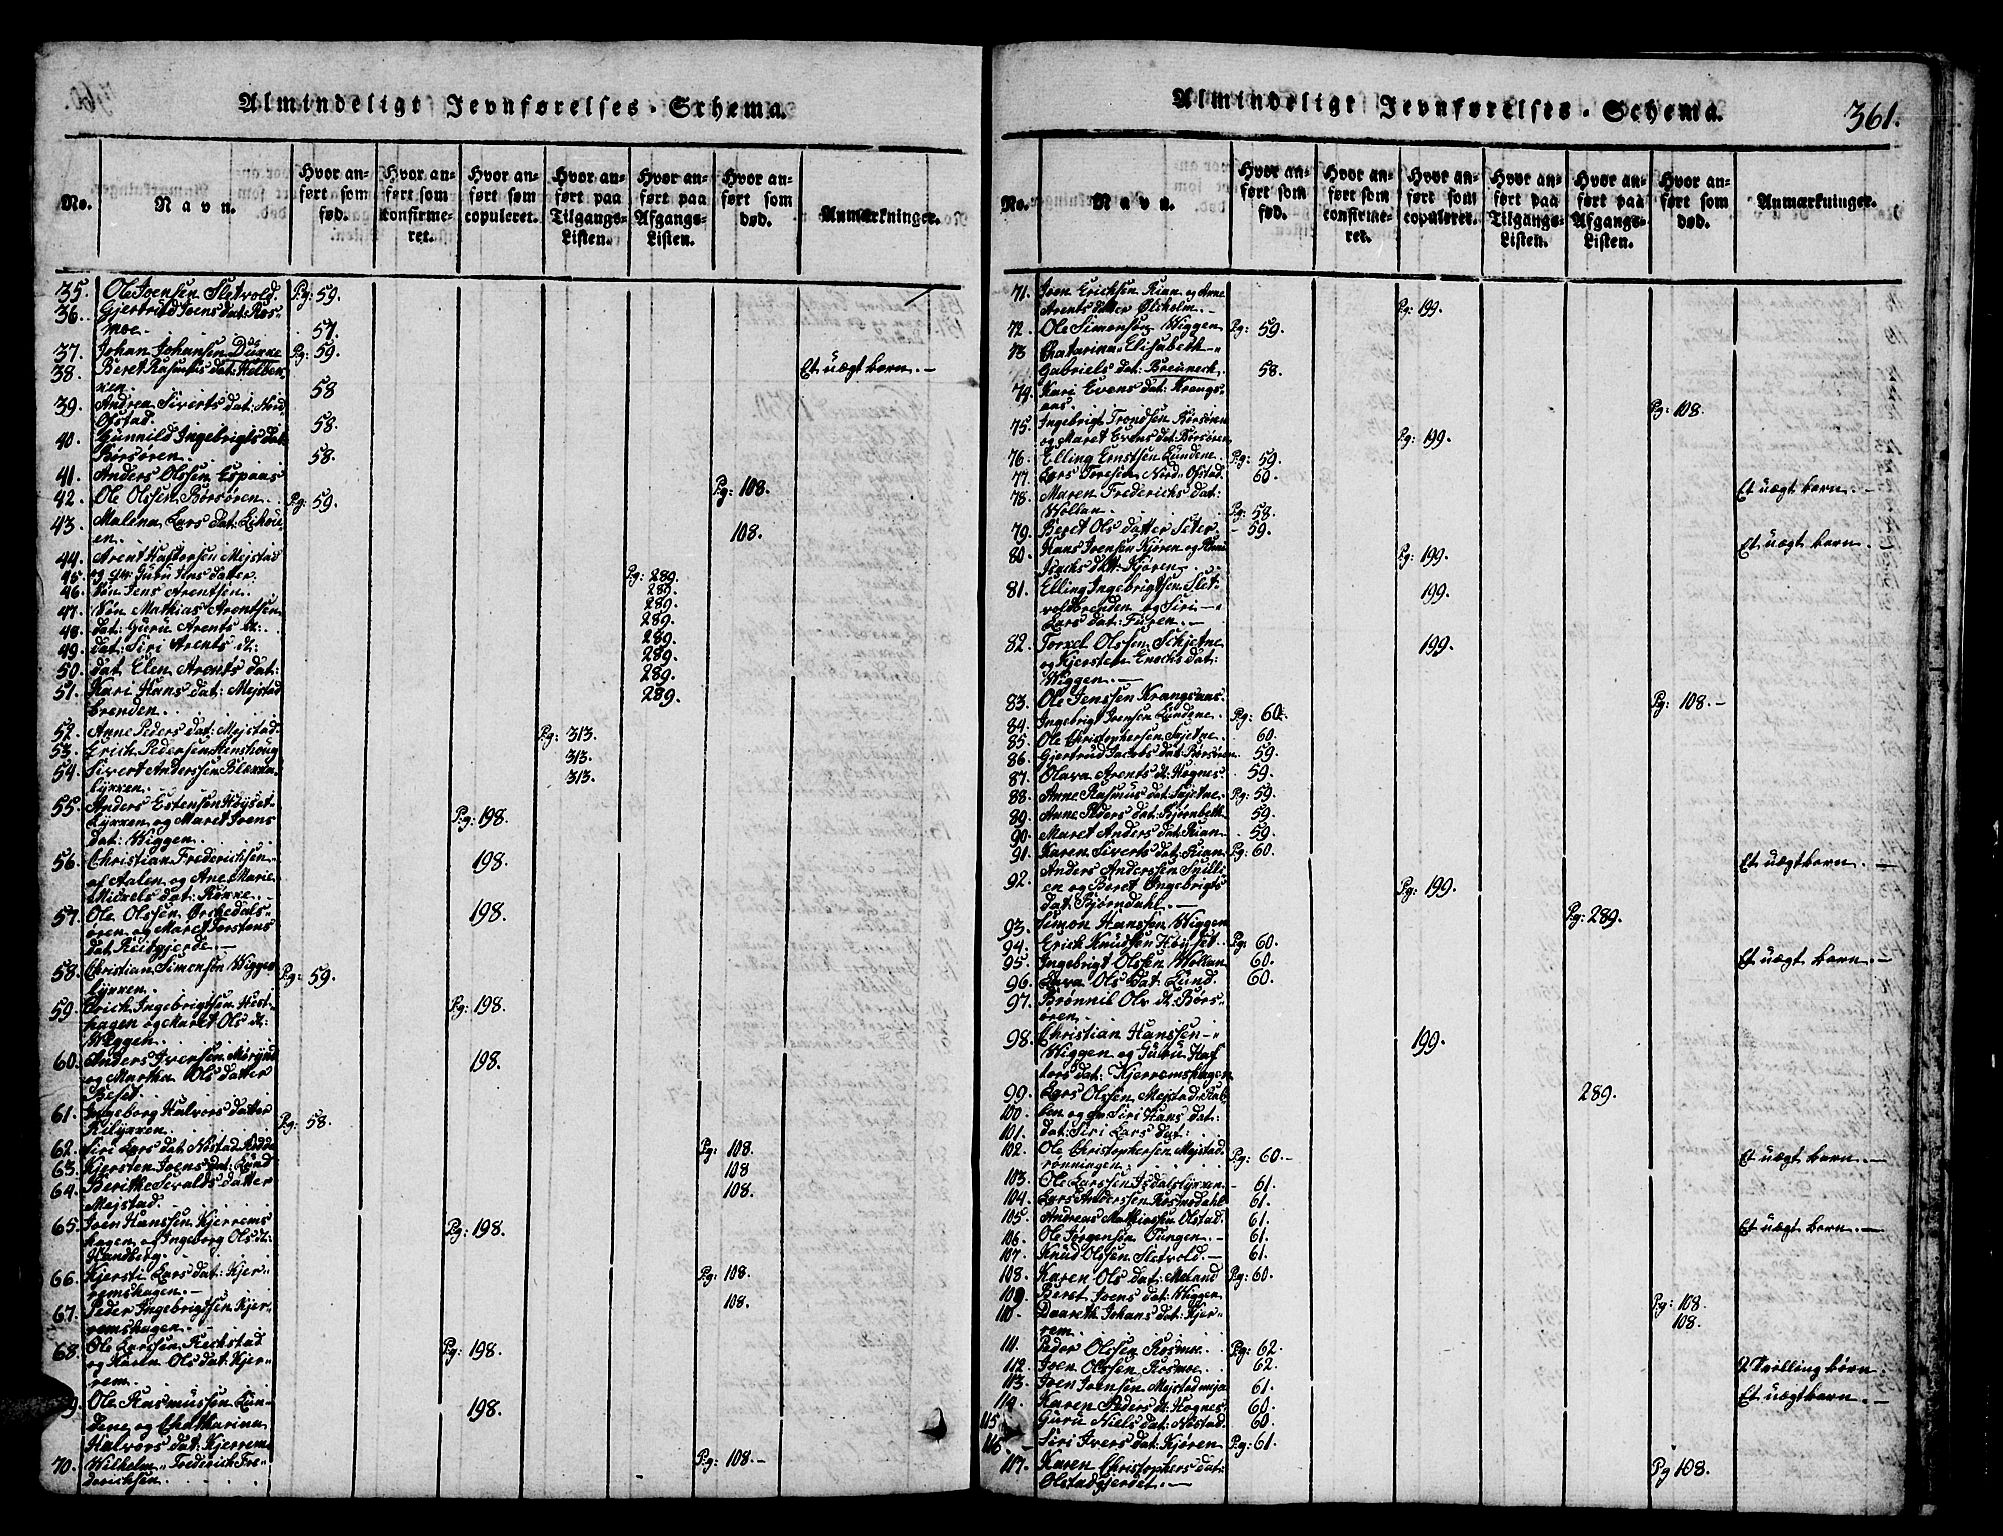 Almindeligt Jevnførelses-Schema.
No.
Navn.
Hvor anført som fød.
Hvor anført som Konfirmeret.
Hvor anført som copuleret.
Hvor anført paa Tilgangs-Listen.
Hvor anført paa Afgangs-Listen.
Hvor anført som død.
Anmærkninger.
35. Ole Joensen Sletvold. Pg: 59.
36. Gjertrud Joens dat: Ros-
moe. 57.
37. Johan Johansen Pg: 59.
38. Beret Rasmus dat: Et uægt barn.-
58
39. Andrea Siverts dat: Nord
Ofstad. 58.
40. Gunnild Ingebrigts dat:
Børsøren. 58.
41. Anders Olssen Espaas Pg: 108.
42. Ole Olssen Børsøren. Pg: 59.
43. Malena Lars dat:
en. 108.
44. Arent Haftorsen Mejstad
45. og Guru Jens datter. Pg: 289.
46. Søn Jens Arentsen. 289.
47. Søn Mathias Arentsen 289.
48. dat: Guru Arents dt: 289.
49. dat: Siri Arents dt: 289.
50. dat Elen Arents dat: 289.
51. Kari Hans dat: Mejstad 289.
brenden. 289.
52. Anne Peders dat: Mejstad Pg: 313.
53. Erich Pedersen Henshoug 313.
54. Sivert Anderssen 313.
55. Anders Estensen Høyset
og Maret Joens Pg: 198.
dat: Wiggen.
56. Christian Frederichsen
af Aalen og Ane Marie 198.
Mickels dat: Røkke.
57. Ole Olssen Ørkedals-
øren og Maret Torstens 198.
dat: Reitgjerde.-
58. Christian Simonsøn Wiggen
Pg: 59.
59. Erich Ingebrigtsen Hest-
hagen og Maret Ols dt: Pg: 198.
Wiggen.
60. Anders Iversen
og Martha Ols datter 198.
Beset.
61. Ingeborg Halvors datter
Pg: 58.
62. Siri Lars dat Nostad Pg: 108.
63. Kjersten Joens dat: Lund 108
64. Berithe Sivalds datter 108.
Mejstad.
65. Joen Hanssen Kjerrems
hagen og Ingeborg Ols dt: Pg: 198.
Sandberg.
66. Kjersti Lars dat: Kjer- Pg: 108.
remshagen.-
67. Peder Ingebrigtsen Kjer- 108.
remshagen.
68. Ole Larssen Reckstad
og Karen Ols dat: Kjer- Pg: 198.
rem.
9. Ole Rasmussen Lun-
dene og Chatharina 198.
Halvors dat: Kjerrem
70. Wilhelm Frederich Fre- Pg: 108.-
derichsen.
Almindeligt Jevnførelses-Schema.
361.
No.
Navn.
Hvor anført som fød.
Hvor anført som confirmeret.
Hvor anført som copuleret.
Hvor anført paa Tilgangs-Listen.
Hvor anført paa Afgangs-Listen.
Hvor anført som død.
Anmærkninger.
71. Joen Erichsen Rian og Anne
Arents datter Pg: 199.
72. Ole Simonsøn Wiggen Pg: 59.
73 Chatarina Elisabeth
Gabriels dat: Breuneck. 58.
74. Kari Evens dat: Krangs-
aas. Pg: 108.
75. Ingebrigt Trondsen Børsøren
og Maret Evens dat: Børsøren Pg: 199.
76. Elling Ernstsen Lundene Pg: 59.
77. Lars Nord Ofstad 60.
78. Maren Frederichs dat: Et uægt barn.-
Wollan. Pg: 58.
79. Beret Ols datter Seter - 59.
80. Hans Joensen Kjøren og Et uægt barn.-
Isachs dtt: Kjøren. Pg: 199.
81. Elling Ingebrigtsen Slet- 199.
voldbrenden og Siri
Lars dat: Furen.-
82. Torkel Olssen Schjetne 199.
og Kjersten Enochs dat:
Wiggen.-
83. Ole Jenssen Krangsaas. Pg: 108.-
84. Ingebrigt Joensen Lundene. Pg: 60.
85. Ole Christophersen 60.
86. Gjertrud Jacobs dat: Børsøren 59.
87. Olava Arents dt: Hognes. 59.
88. Anne Rasmus dat: Pg: 59.
89. Anne Peders dat: Bjørnbeth 59.
90. Maret Anders dat: Rian 59.
91. Karen Siverts dat: Rian Pg: 60. Et uægt barn.-
92. Anders Anderssen Snilli
en og Beret Ingebrigts Pg: 199.
dat: Bjørndahl.-
93. Simon Hanssen Wiggen Pg: 289.
94. Erich Knudsen Høyset. Pg 60.
95. Ingebrigt Olssen Wollan 60. Et uægt barn.-
96. Lava Ols dat: Lund. 60.
97. Brønnil Ols dt: Børs-
øren.
98. Christian Hanssen
Wiggen og Guru Haf 199.
tors dat: Kjerremshagen
99. Lars Olssen Mejstad 289.
100. en og Siri Hans dat:
101. dat: Siri Lars dat:
102. Ole Christophersen Mejstad Et uægt barn.-
rønningen. Pg: 60.-
103. Ole Larssen - 61.
104. Lars Anderssen Rosmodahl 61.
105. Andreas Mathiassen Olstad 61. Et uægt barn.-
106. Ole Jørgensøn Oungen.- 61.
107. Knud Olssen Sletvold.- 61.
108. Karen Ols dat: Meland Pg: 60.
109. Beret Joens dat: Wiggen Pg: 108.
110. Daareth Johans dat: Kjer- 108.
rem.
111. Peder Olssen Rosmoe. Pg: 62.
112. Joen Olssen Rosmoe. 62. 2 Tvilling børn.
113. Joen Joensen Mejstad 61. Et uægt barn.-
114. Karen Peders dt: Hognes. 60.
115. Guru Niels dat: Nostad. 60.
116. Siri Ivers dat: Kjøren. Pg: 61.
117. Karen Christophers dat: Pg 108.
Olstadgjerdet.-